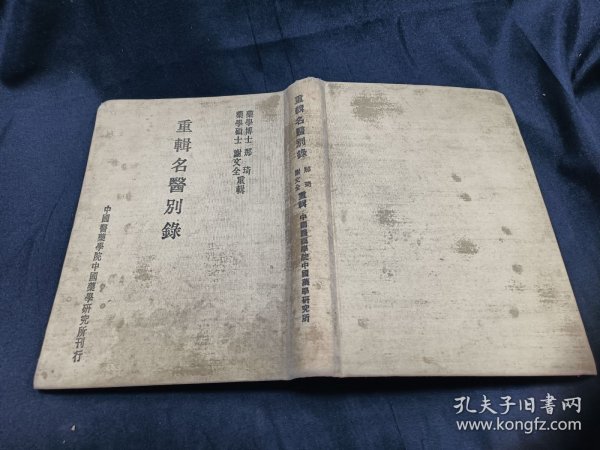 藥學博士 那 琦
藥學碩士 謝文全 重輯
重輯名醫別錄
中國醫藥學院中國藥學研究所刊行
重輯名醫別錄 那 琦 謝文全 重輯 中國醫藥學院中國藥學研究所
孔夫子旧书网
www.kongfz.com